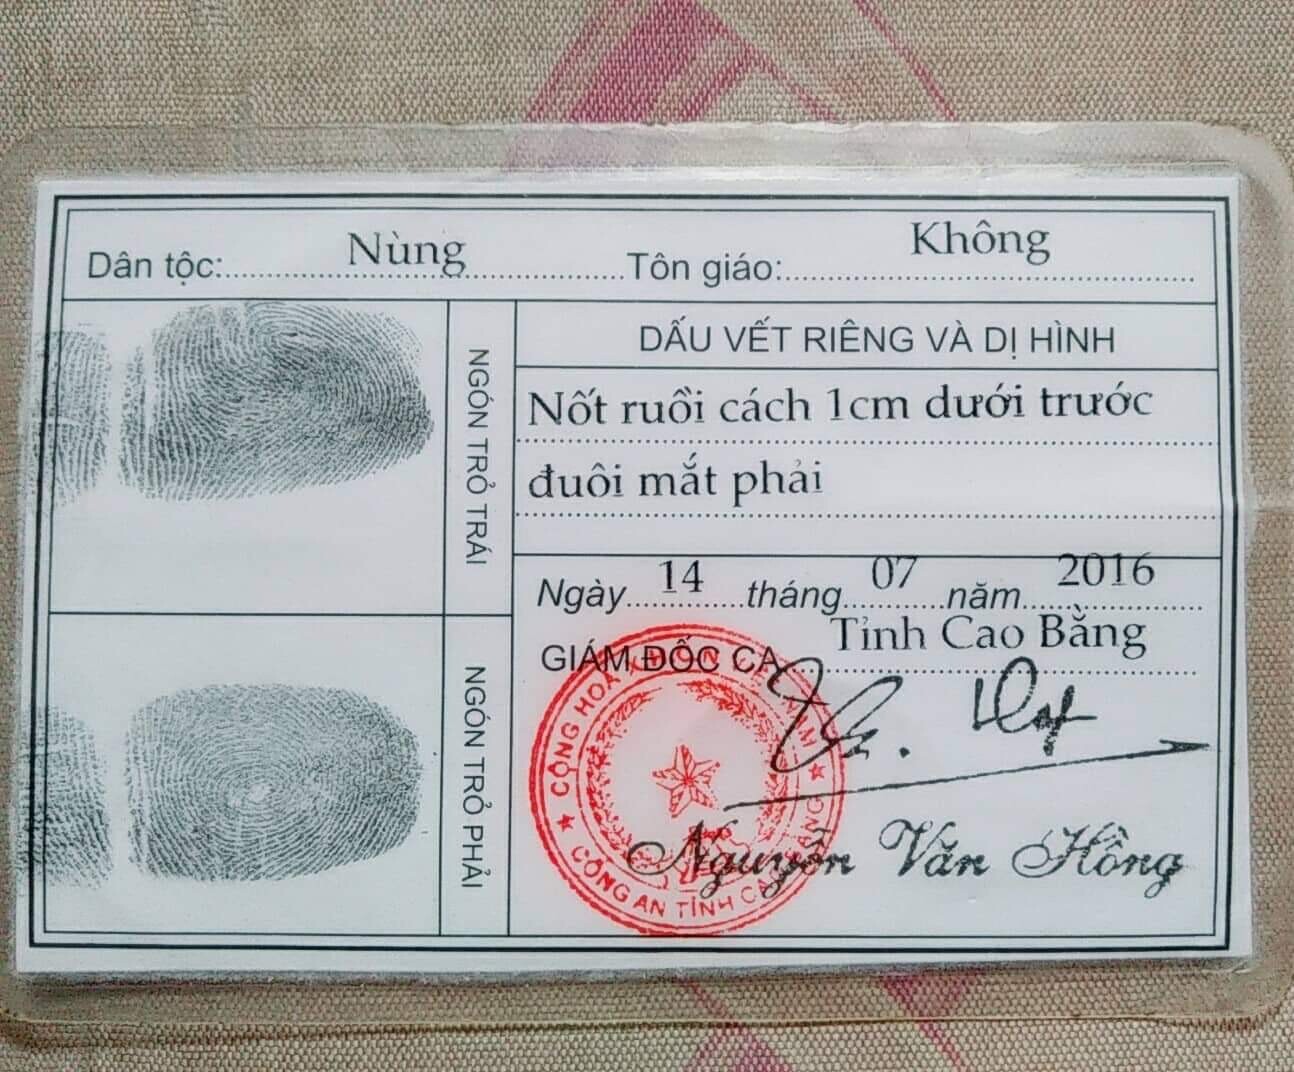 Dân tộc: Nùng Tôn giáo: Không
NGÓN TRỎ TRÁI
DẤU VẾT RIÊNG VÀ DỊ HÌNH
Nốt ruồi cách 1cm dưới trước
đuôi mắt phải
NGÓN TRỎ PHẢI
Ngày 14 tháng 07 năm 2016
GIÁM ĐỐC CA Tỉnh Cao Bằng
CỘNG HOÀ NAM
CÔNG AN TỈNH CAO BẰNG
Nguyễn Văn Hồng